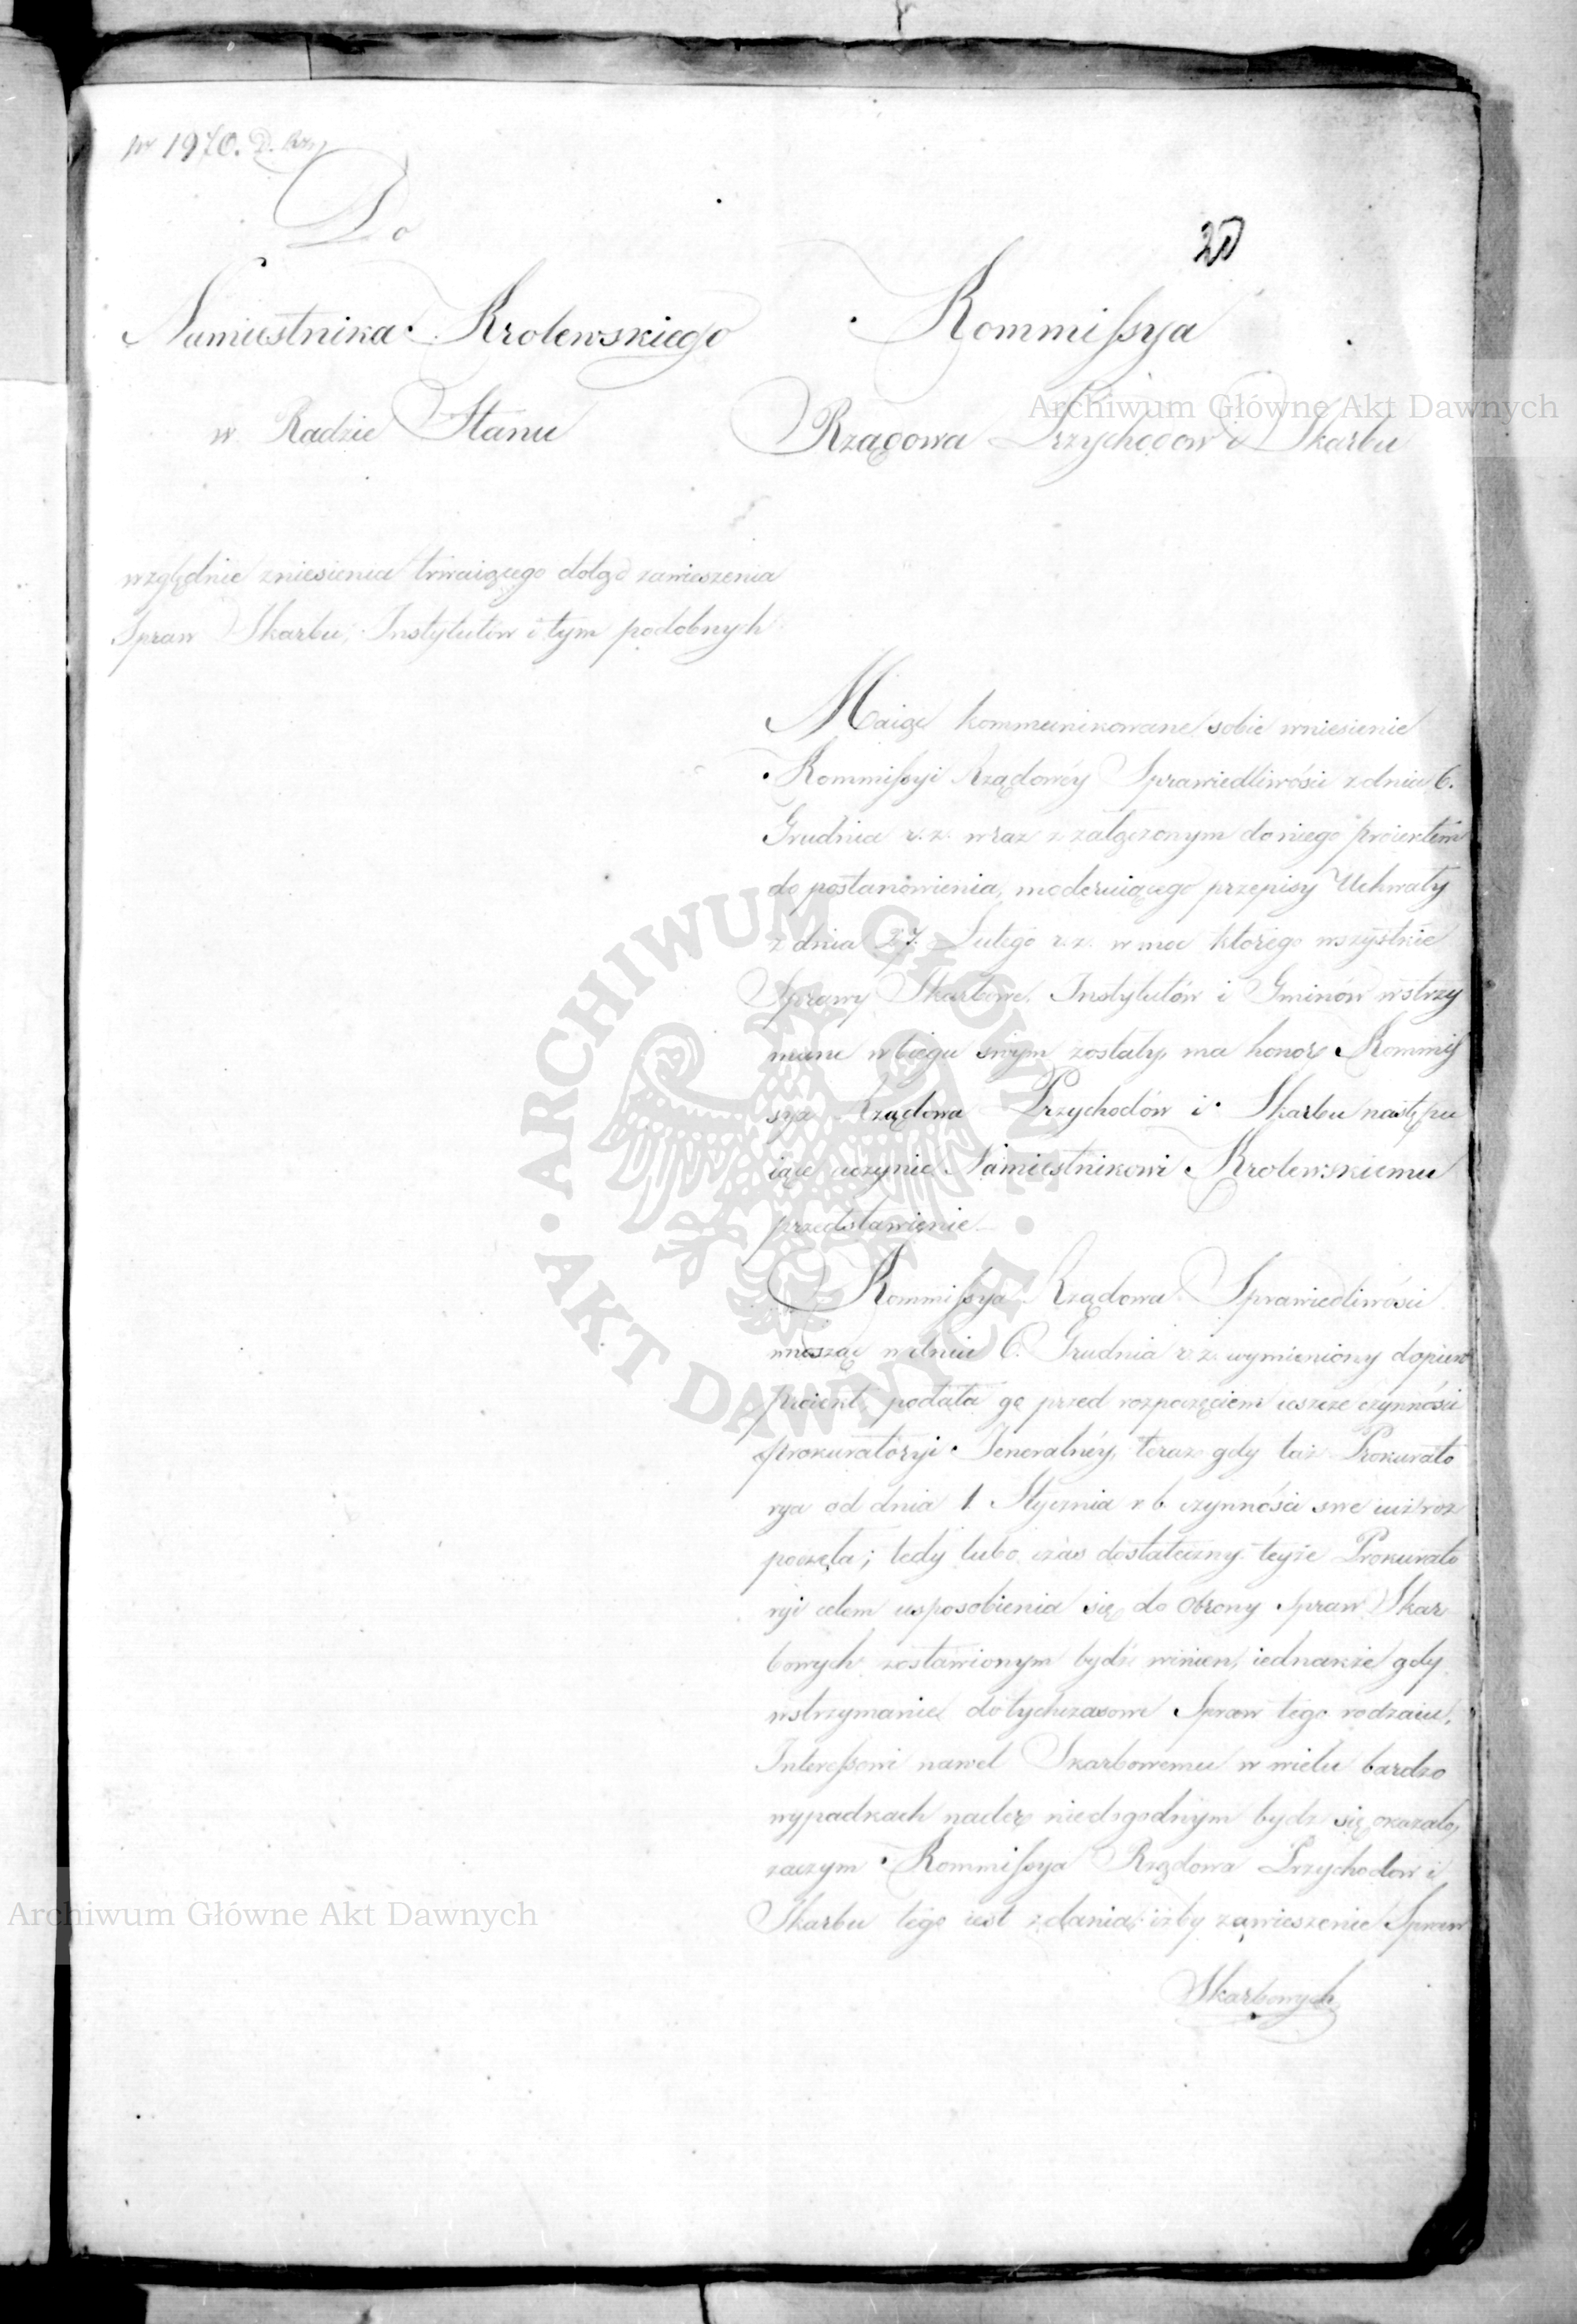 Nr 1970. D.
20
Do
Namiestnika Krolewskiego
w Radzie Stanu
Kommissya
Rządowa Przychodow i Skarbu
względnie zniesienia trwaiącego dotąd zawieszenia
Spraw Skarbu, Instytutów i tym podobnych
Maiąc kommunikowane sobie wniesienie
Kommissyi Rządowéy Sprawiedliwości z dnia 6.
Grudnia r. z. wraz z załączonym do niego proiektem
do postanowienia, moderuiącego przepisy Uchwały
z dnia 27. Lutego r. z. w moc którego wszystkie
Sprawy Skarbowe, Instytutów i Gminów wstrzy
mane w biegu swym zostały, ma honor Kommis
sya Rządowa Przychodów i Skarbu następu
iące uczynić Namiestnikowi Krolewskiemu
przedstawienie
Kommissya Rządowa Sprawiedliwości
wnosząc w dniu 6. Grudnia r. z. wymieniony dopiero
proiekt, podała go przed rozpoczęciem ieszcze czynności
prokuratoryi Jeneralnéy, teraz gdy taż Prokurato
rya od dnia 1. Stycznia r. b. czynności swe iuż roz
poczęła; tedy lubo czas dostateczny teyże Prokurato
ryi celem usposobienia się do obrony Spraw Skar
bowych zostawionym bydź winien, iednakże gdy
wstrzymanie dotychczasowe Spraw tego rodzaiu,
Interessowi nawet Skarbowemu w wielu bardzo
wypadkach nader niedogodnym bydź się okazało,
zaczym Kommissya Rządowa Przychodow i
Skarbu tego iest zdania, iżby zawieszenie Spraw
Skarbowych
Archiwum Główne Akt Dawnych
ARCHIWUM GŁÓWNE
AKT DAWNYCH
Archiwum Główne Akt Dawnych